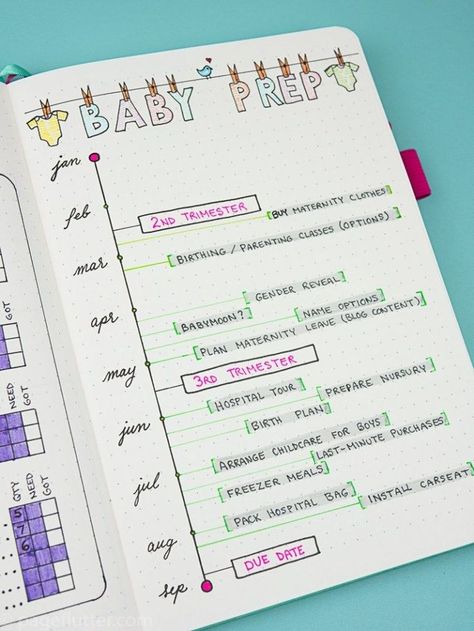 BABY PREP
jan
feb
2ND TRIMESTER
BUY MATERNITY CLOTHES
mar
BIRTHING / PARENTING CLASSES (OPTIONS)
GENDER REVEAL
apr
BABYMOON?
NAME OPTIONS
PLAN MATERNITY LEAVE (BLOG CONTENT)
may
3RD TRIMESTER
HOSPITAL TOUR
PREPARE NURSERY
jun
BIRTH PLAN
ARRANGE CHILDCARE FOR BOYS
LAST-MINUTE PURCHASES
jul
FREEZER MEALS
PACK HOSPITAL BAG
INSTALL CARSEAT
aug
DUE DATE
sep
GOT
NEED
GOT
QTY
NEED
GOT
5
7
6
©pageflutter.com